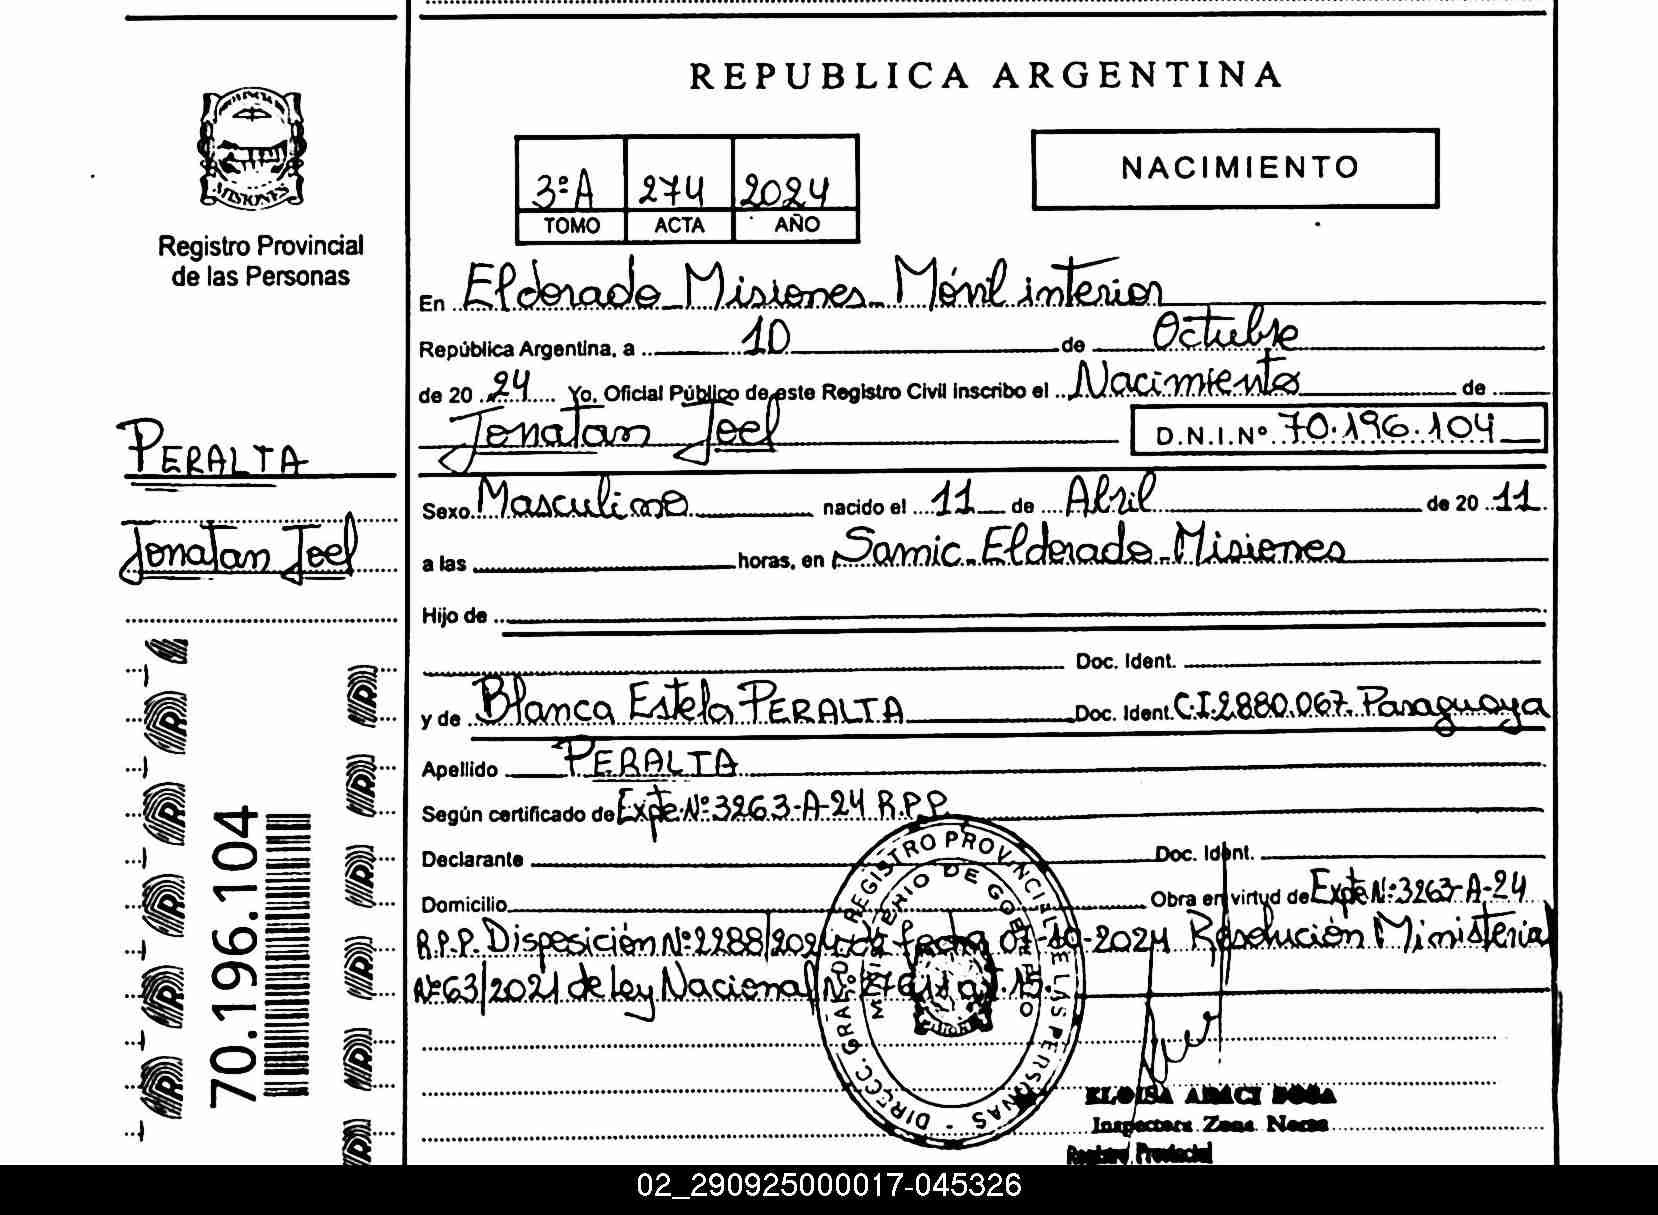 REPUBLICA ARGENTINA
PROVINCIA DE
MISIONES
Registro Provincial
de las Personas
3ºA 274 2024
TOMO ACTA AÑO
NACIMIENTO
En Eldorado Misiones Móvil interior
República Argentina, a 10 de Octubre
de 2024 Yo, Oficial Público de este Registro Civil inscribo el Nacimiento de
Jonatan Joel D.N.I.Nº 70.196.104
PERALTA
Jonatan Joel
Sexo Masculino nacido el 11 de Abril de 2011
a las horas, en Samic. Eldorado-Misiones
Hijo de
Doc. Ident.
y de Blanca Estela PERALTA Doc. Ident. C.I.2880.067. Paraguaya
Apellido PERALTA
Según certificado de Expte.Nº3263-A-24 R.P.P.
Declarante Doc. Ident.
Domicilio Obra en virtud de Expte Nº3263-A-24
R.P.P. Disposición Nº2288/2024 de fecha -10-2024 Resolución Ministerial
Nº63/2021 de Ley Nacional Nº
DIRECC. GRAL. DEL REGISTRO PROVINCIAL DE LAS PERSONAS
MINISTERIO DE GOBIERNO
70.196.104
ELOISA ARACI
Inspectora Zona
Registro Provincial
02_290925000017-045326